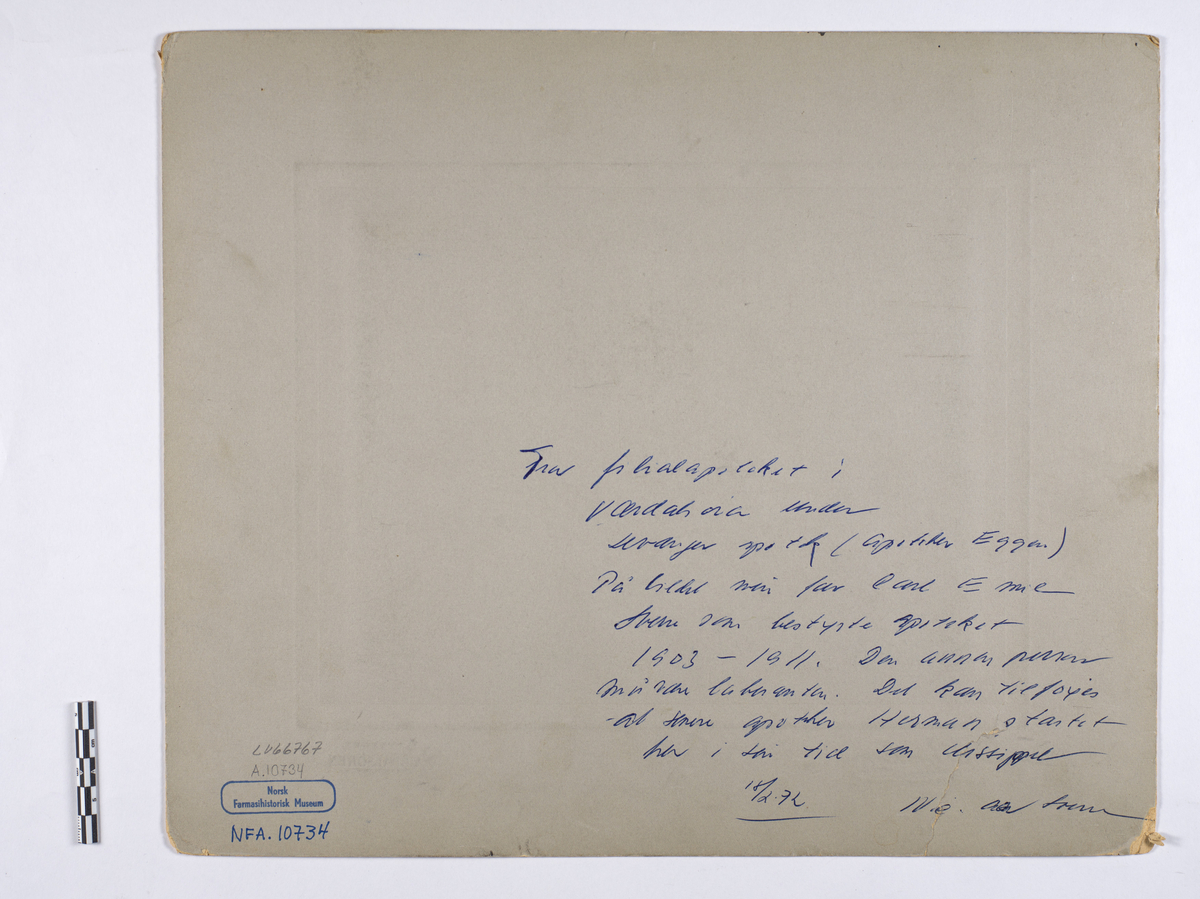 Fra filialapoteket i
Værdalsøra under
Levanger apotek (apoteker Eggen)
På bildet min far Carl Emil
som bestyrte apoteket
1903 - 1911. Den annen person
må være laboranten. Det kan tilføies
at senere apoteker Herman startet
her i sin tid som discippel
18/2.72.
LV66767
A.10734
Norsk
Farmasihistorisk Museum
NFA.10734